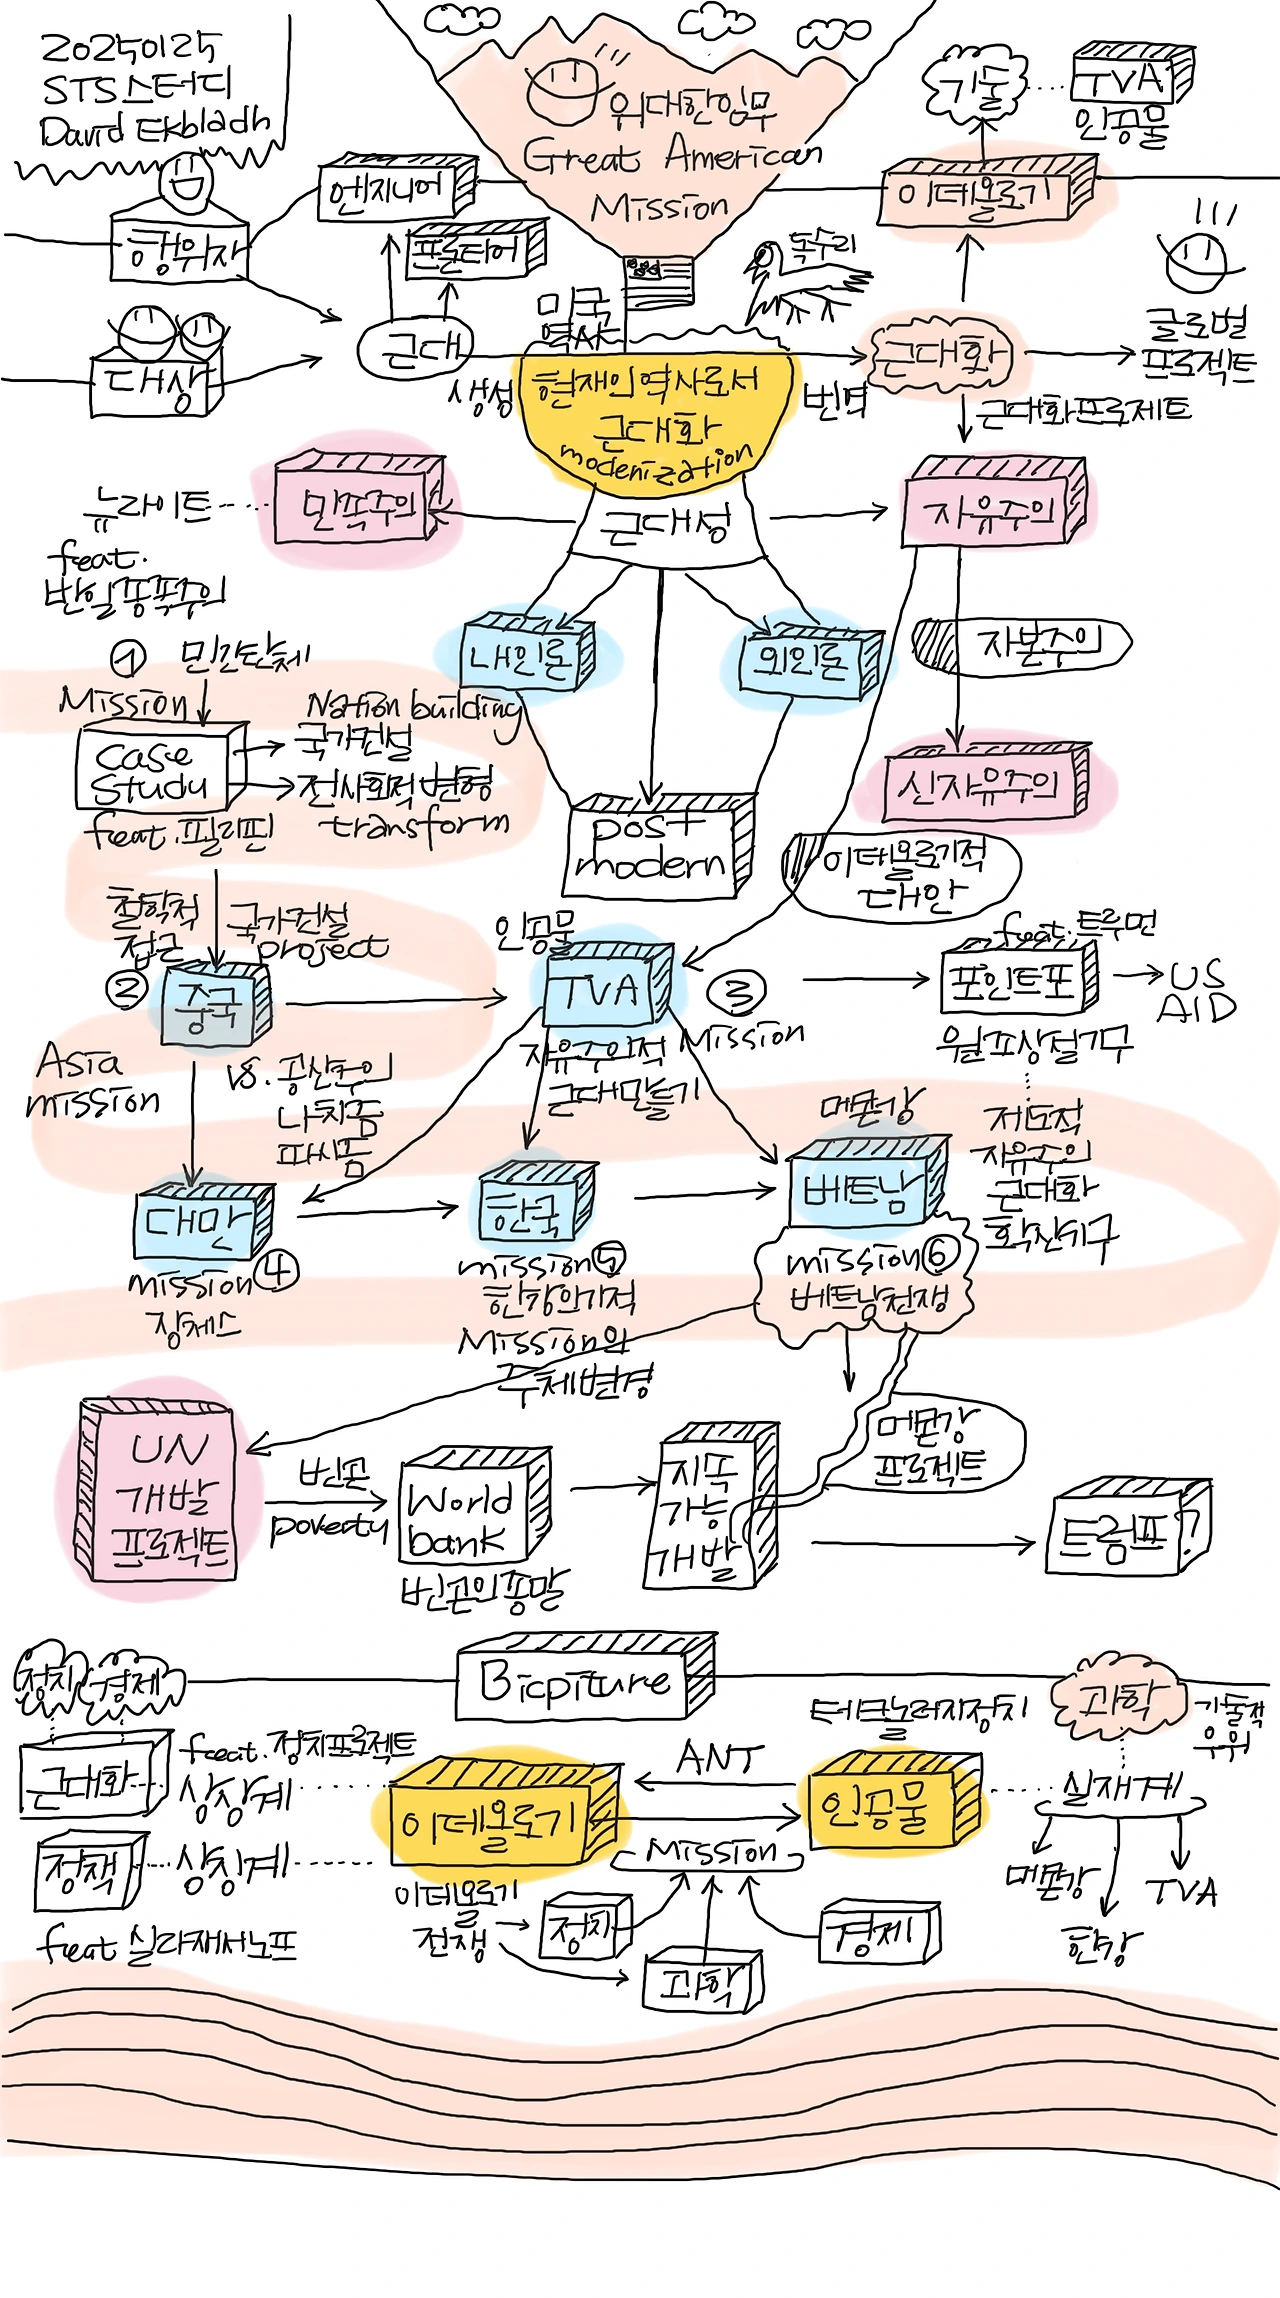 20250125
STS스터디
David Ekbladh
위대한임무
Great American
Mission
기술
TVA
인공물
행위자
엔지니어
프론티어
이데올로기
독수리
미국
역사
대상
근대
생성
현재의역사로서
근대화
modenization
번역
근대화
글로벌
프로젝트
근대화프로젝트
뉴라이트
feat.
반일종족주의
민족주의
근대성
자유주의
내인론
외인론
자본주의
신자유주의
post
modern
이데올로기적
대안
① 민간단체
Mission
case
study
feat.필리핀
Nation building
국가건설
전사회적변형
transform
철학적
접근
국가건설
project
②
중국
인공물
TVA
③
Mission
feat.트루먼
포인트포
US
AID
원조상설기구
제도적
자유주의
근대화
확산기구
Asia
mission
vs. 공산주의
나치즘
파시즘
자유주의적
근대만들기
메콩강
대만
mission④
장제스
한국
mission⑤
한강의기적
Mission의
주체변경
베트남
mission⑥
베트남전쟁
UN
개발
프로젝트
빈곤
poverty
World
bank
빈곤의종말
지속
가능
개발
메콩강
프로젝트
트럼프?
Bicpiture
정치
경제
근대화
feeat.정치프로젝트
상상계
정책
상징계
feat 실라재서노프
이데올로기
ANT
Mission
테크놀러지장치
인공물
과학
기술적
우위
실재계
메콩강
한강
TVA
이데올로기
전쟁
정치
과학
경제